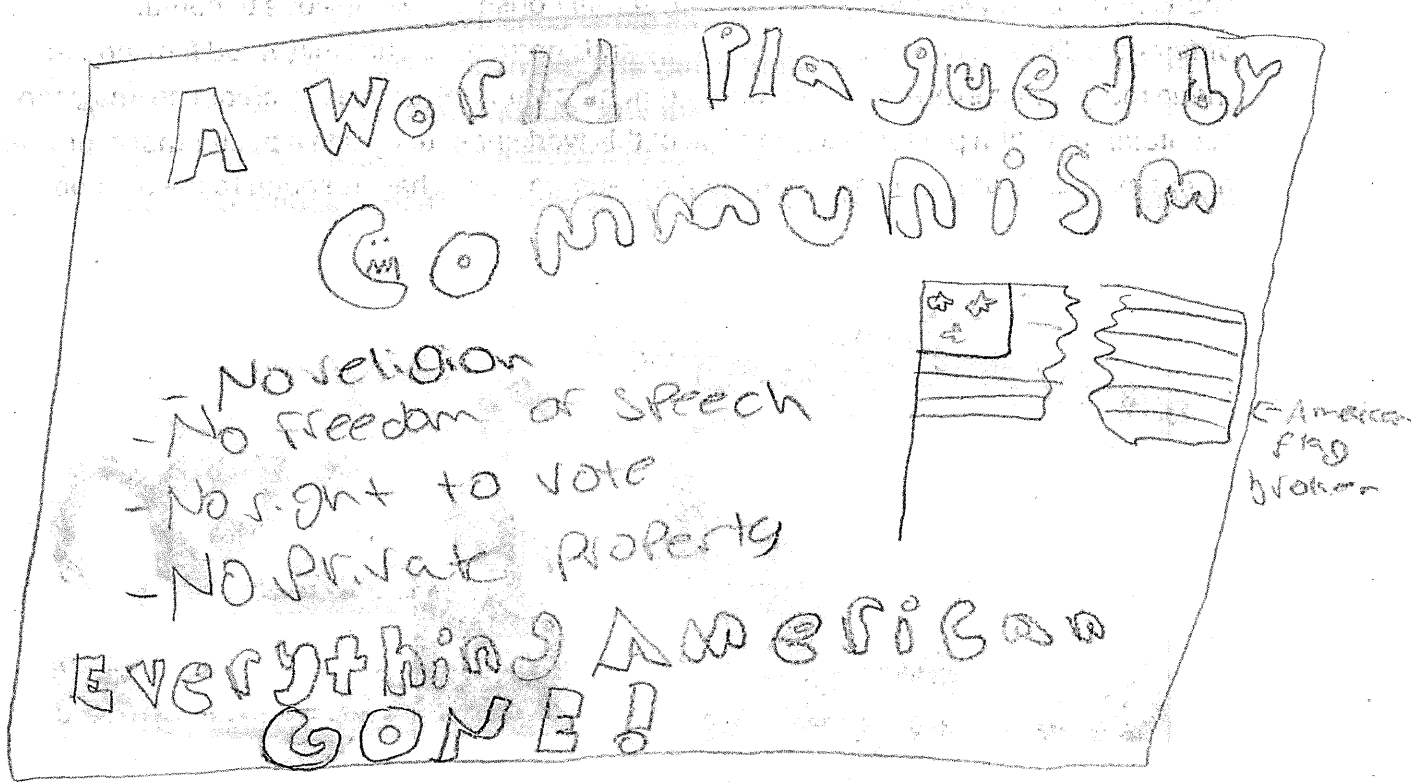 A World Plagued by
Communism
- No religion
- No freedom of speech
- No right to vote
- No Private Property
← American
flag
broken
Everything American
GONE!